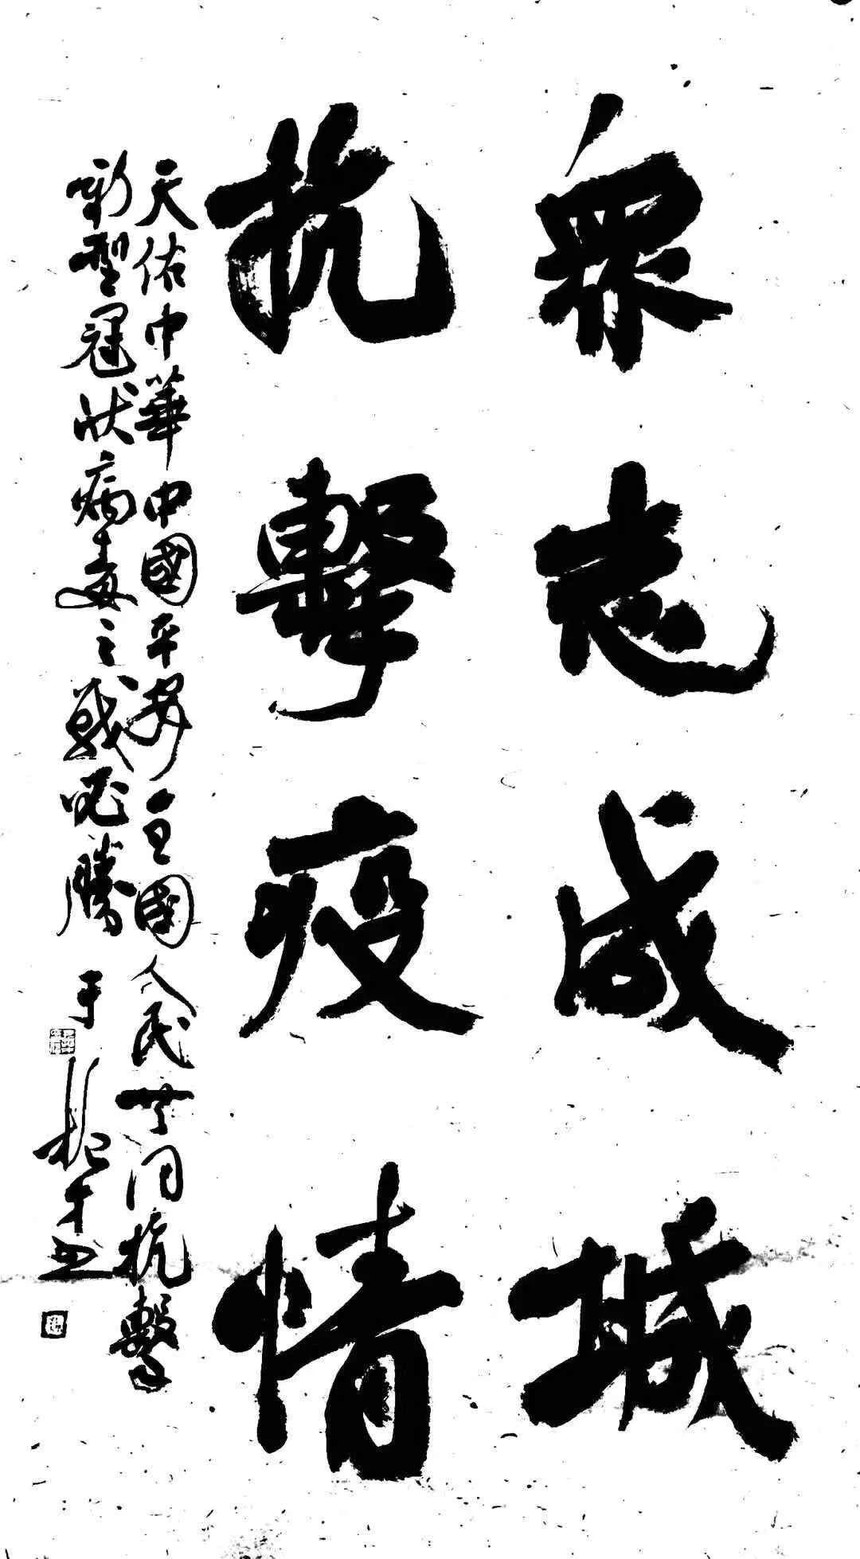 衆志成城
抗擊疫情
天佑中華中國平安全國人民共同抗擊
新型冠狀病毒之戰必勝 于
才書